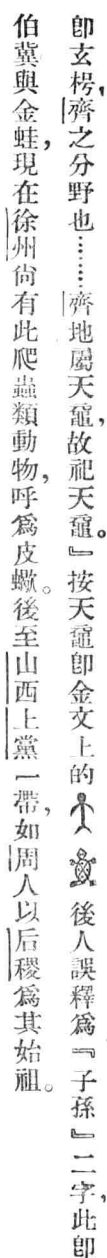 卽玄枵，齊之分野也………齊地屬天黿，故祀天黿。』按天黿卽金文上的後人誤釋爲『子孫』二字，此卽
伯冀與金蛙，現在徐州尙有此爬蟲類動物，呼爲皮蠍。後至山西上黨一帶，如周人以后稷爲其始祖。